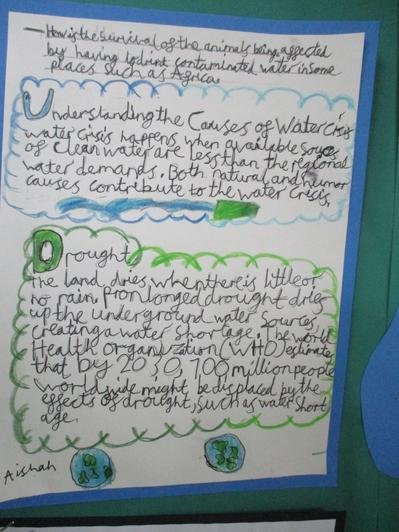 How is the survival of the animals being affected
by having to drint contaminated water in some
places such as Africa.
Understanding the Causes of Water Crisis
water crisis happens when available souces
of clean water are less than the regional
water demands. Both natural and humar
causes contribute to the water crisis.
Drought
The land dries when there is little or
no rain. Pronlonged drought dries
up the underground water sources,
creating a water shortage. The world
Health organization (WHO) estimates
that by 2030, 700 million people
world wide might be displaced by the
effects of drought, such as water short
age.
Aishah